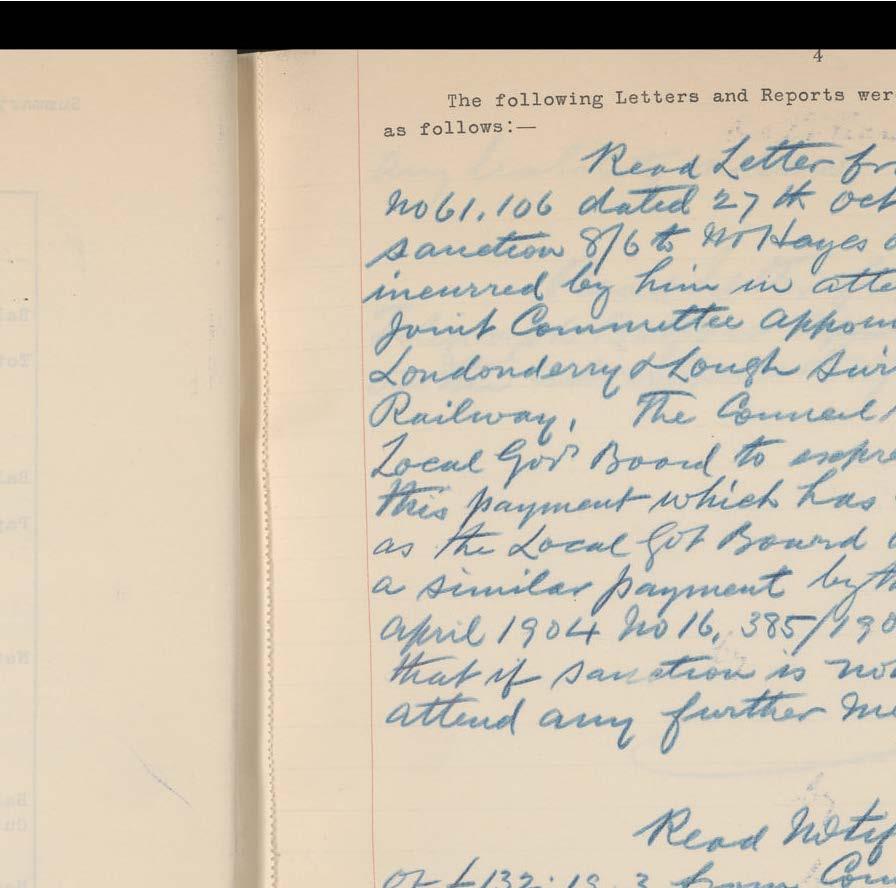 4
The following Letters and Reports wer
as follows:—
Read Letter fr
No 61,106 dated 27th Oct
sanction 8/6 to Mr Hayes
incurred by him in atte
Joint Committee appoin
Londonderry & Lough Swi
Railway. The Council
Local Govt Board to expre
this payment which has
as the Local Got Board
a similar payment by th
April 1904 No 16,385/190
that if sanction is no
attend any further Me
Read Notif
of £132.19.3 from Coun